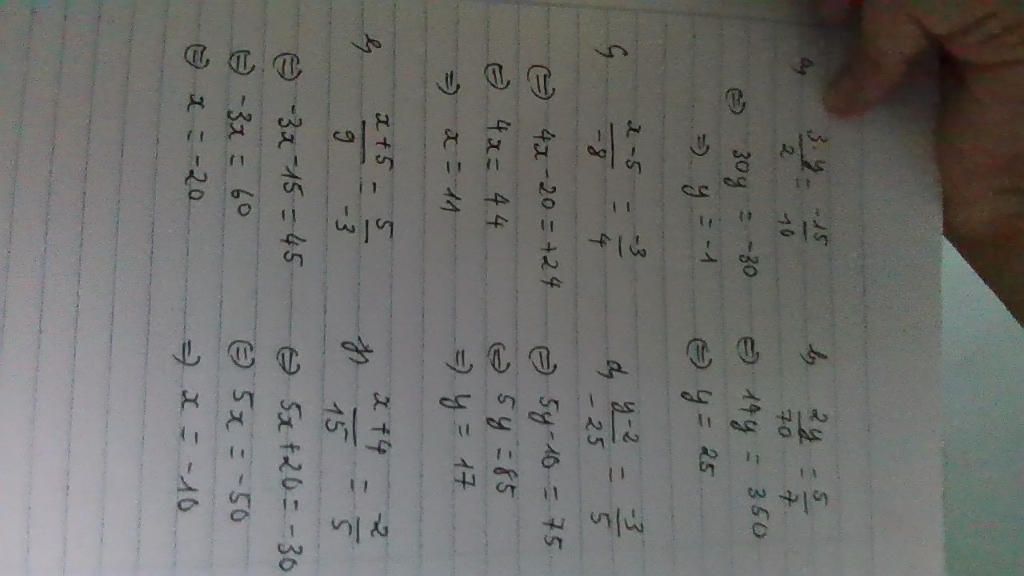 a, 3y/2 = -15/10
⇔ 30y = -30
⇒ y = -1
b, 2y/70 = 5/7
⇔ 14y = 350
⇔ y = 25
c, x-5/-8 = -3/4
⇔ 4x-20 = +24
⇔ 4x = 44
⇒ x = 11
d, y-2/-25 = -3/5
⇔ 5y-10 = 75
⇔ 5y = 85
⇒ y = 17
e, x+5/9 = 5/-3
⇔ -3x-15 = 45
⇔ -3x = 60
⇔ x = -20
f, x+4/15 = -2/5
⇔ 5x+20 = -30
⇔ 5x = -50
⇒ x = -10